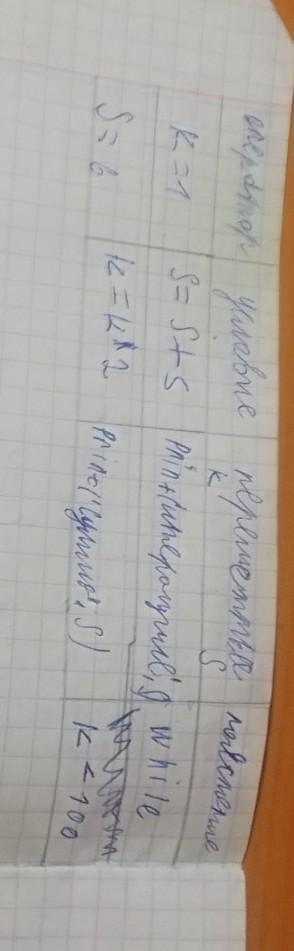 оператор условие переменная повторение
k s
k = 1 s = s + s print(   ,s while
s = 6 k = k * 2 print("сумма", s) k < 100